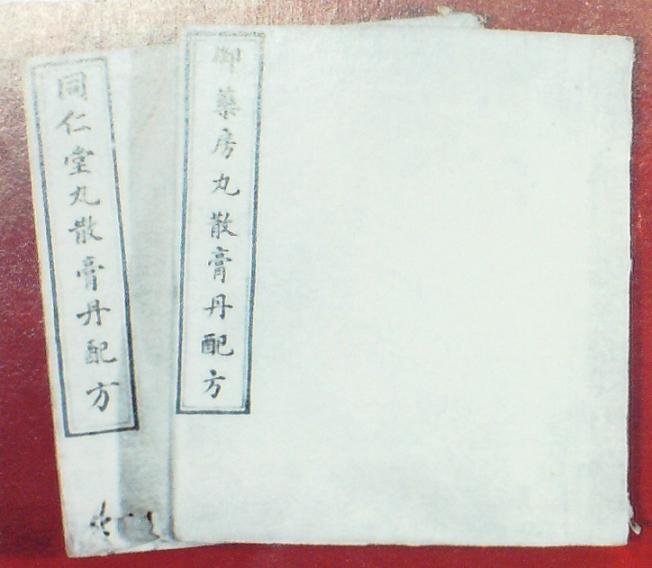 御藥房丸散膏丹配方
同仁堂丸散膏丹配方